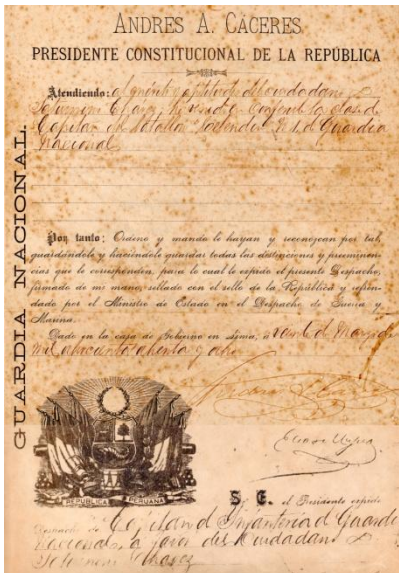 ANDRES A. CÁCERES
PRESIDENTE CONSTITUCIONAL DE LA REPÚBLICA
Atendiendo: al mérito y aptitudes del ciudadano D.
Capitan del Batallon N. 1 de Guardia
Nacional
Por tanto: Ordeno y mando le hayan y reconozcan por tal,
guardándole y haciéndole guardar todas las distinciones y preeminen
cias que le correspondan, para lo cual le expido el presente Despacho,
firmado de mi mano, sellado con el sello de la República y refren-
dado por el Ministro de Estado en el Despacho de Guerra y
Marina.
Dado en la casa de Gobierno en Lima, á veinte de Marzo de
mil ochocientos ochenta y ocho
GUARDIA NACIONAL.
REPUBLICA PERUANA
S. E. el Presidente expide
Despacho de Capitan de Infanteria de Guardia
Nacional, a favor del Ciudadano D.
Chavez